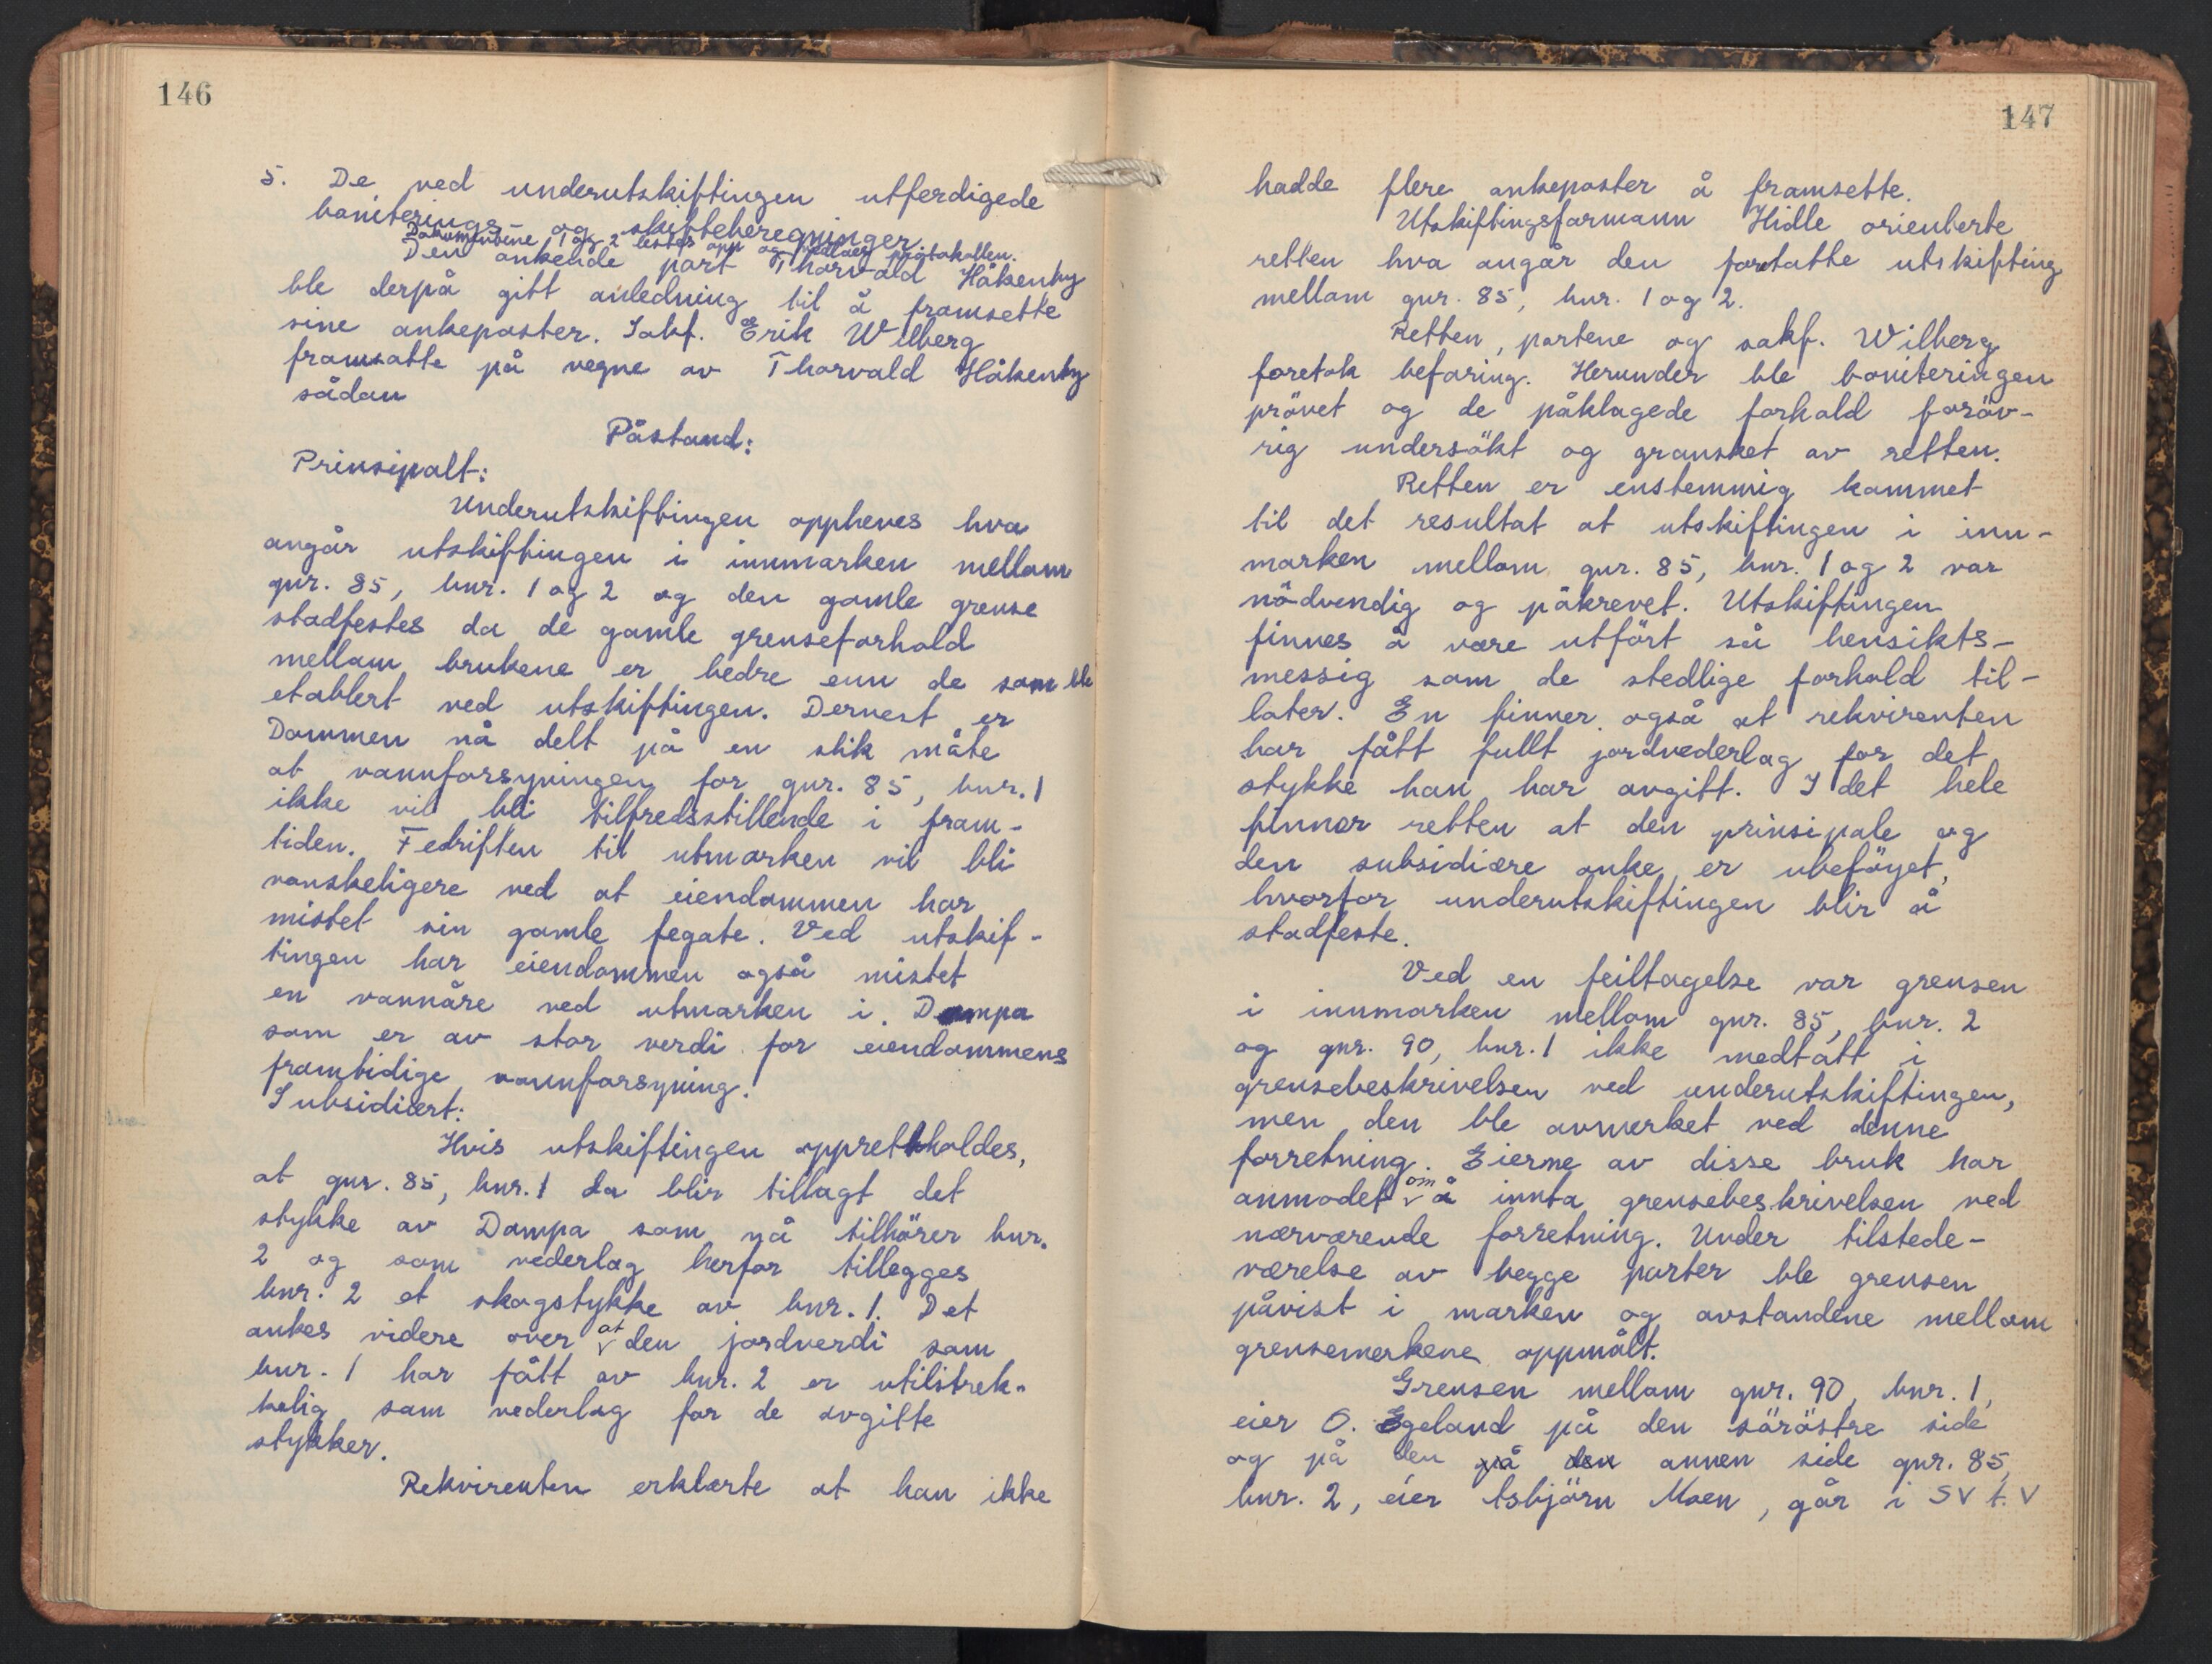 146
5. De ved underutskiftingen utferdigede
boniterings- og skifteberegninger.
Dokumentene 1 og 2 lestes opp og protokollen.
Den ankende part Thorvald Håkenby
ble derpå gitt anledning til å framsette
sine ankeposter. Sakf. Erik Wilberg
framsatte på vegne av Thorvald Håkenby
sådan
Påstand:
Prinsipalt:
Underutskiftingen oppheves hva
angår utskiftingen i innmarken mellom
gnr. 85, bnr. 1 og 2 og den gamle grense
stadfestes da de gamle grenseforhold
mellom brukene er bedre enn de som ble
etablert ved utskiftingen. Dernest er
Dammen nå delt på en slik måte
at vannforsyningen for gnr. 85, bnr. 1
ikke vil bli tilfredsstillende i fram-
tiden. Fedriften til utmarken vil bli
vanskeligere ved at eiendommen har
mistet sin gamle fegate. Ved utskif-
tingen har eiendommen også mistet
en vannåre ved utmarken i Dampa
som er av stor verdi for eiendommens
framtidige vannforsyning.
Subsidiært:
Hvis utskiftingen opprettholdes,
at gnr. 85, bnr. 1 da blir tillagt det
stykke av Dampa som nå tilhörer bnr.
2 og som vederlag herfor tillegges
bnr. 2 et skogstykke av bnr. 1. Det
ankes videre over at den jordverdi som
bnr. 1 har fått av bnr. 2 er utilstrek-
kelig som vederlag for de avgitte
stykker.
Rekvirenten erklærte at han ikke
147
hadde flere ankeposter å framsette.
Utskiftingsformann Hidle orienterte
retten hva angår den foretatte utskifting
mellom gnr. 85, bnr. 1 og 2.
Retten, partene og sakf. Wilberg
foretok befaring. Herunder ble boniteringen
prövet og de påklagede forhold foröv-
rig undersökt og gransket av retten.
Retten er enstemmig kommet
til det resultat at utskiftingen i inn-
marken mellom gnr. 85, bnr. 1 og 2 var
nödvendig og påkrevet. Utskiftingen
finnes å være utfört så hensikts-
messig som de stedlige forhold til-
later. En finner også at rekvirenten
har fått fullt jordvederlag for det
stykke han har avgitt. I det hele
finner retten at den prinsipale og
den subsidiære anke er ubeföyet,
hvorfor underutskiftingen blir å
stadfeste.
Ved en feiltagelse var grensen
i innmarken mellom gnr. 85, bnr. 2
og gnr. 90, bnr. 1 ikke medtatt i
grensebeskrivelsen ved underutskiftingen,
men den ble avmerket ved denne
forretning. Eierne av disse bruk har
anmodet om å innta grensebeskrivelsen ved
nærværende forretning. Under tilstede-
værelse av begge parter ble grensen
påvist i marken og avstandene mellom
grensemerkene oppmålt.
Grensen mellom gnr. 90, bnr. 1,
eier O. Egeland på den söröstre side
og på den på den annen side gnr. 85,
bnr. 2, eier Asbjörn Moen, går i SV t. V